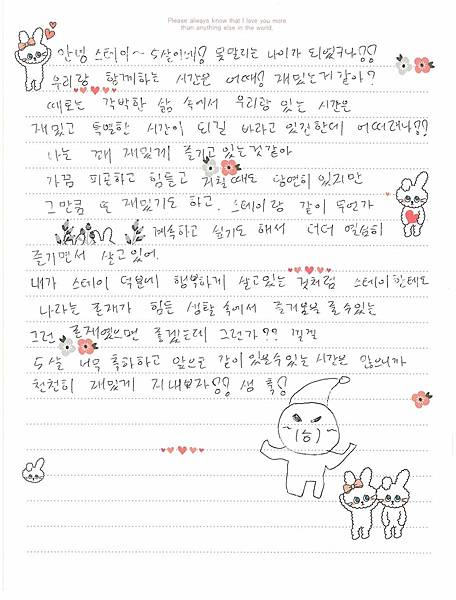 Please always know that I love you more
than anything else in the world.
안녕 스테이~ 5살이네! 못말리는 나이가 되었구나!!
우리랑 함께하는 시간은 어때? 재밌는거 같아?
때로는 각박한 삶 속에서 우리랑 있는 시간은
재밌고 특별한 시간이 되길 바라고 있긴한데 어떠려나??
나는 꽤 재밌게 즐기고 있는것 같아
가끔 피곤하고 힘들고 지칠때도 당연히 있지만
그만큼 또 재밌기도 하고. 스테이랑 같이 무언가
계속하고 싶기도 해서 더더 열심히
즐기면서 살고 있어.
내가 스테이 덕분에 행복하게 살고있는 것처럼 스테이한테도
나라는 존재가 힘든 생활 속에서 즐거움을 줄 수 있는
그런 존재였으면 좋겠는데 그런가?? 낄낄
5살 너무 축하하고 앞으로 같이 있을수 있는 시간은 많으니까
천천히 재밌게 지내보자!! 생 축!
(승)